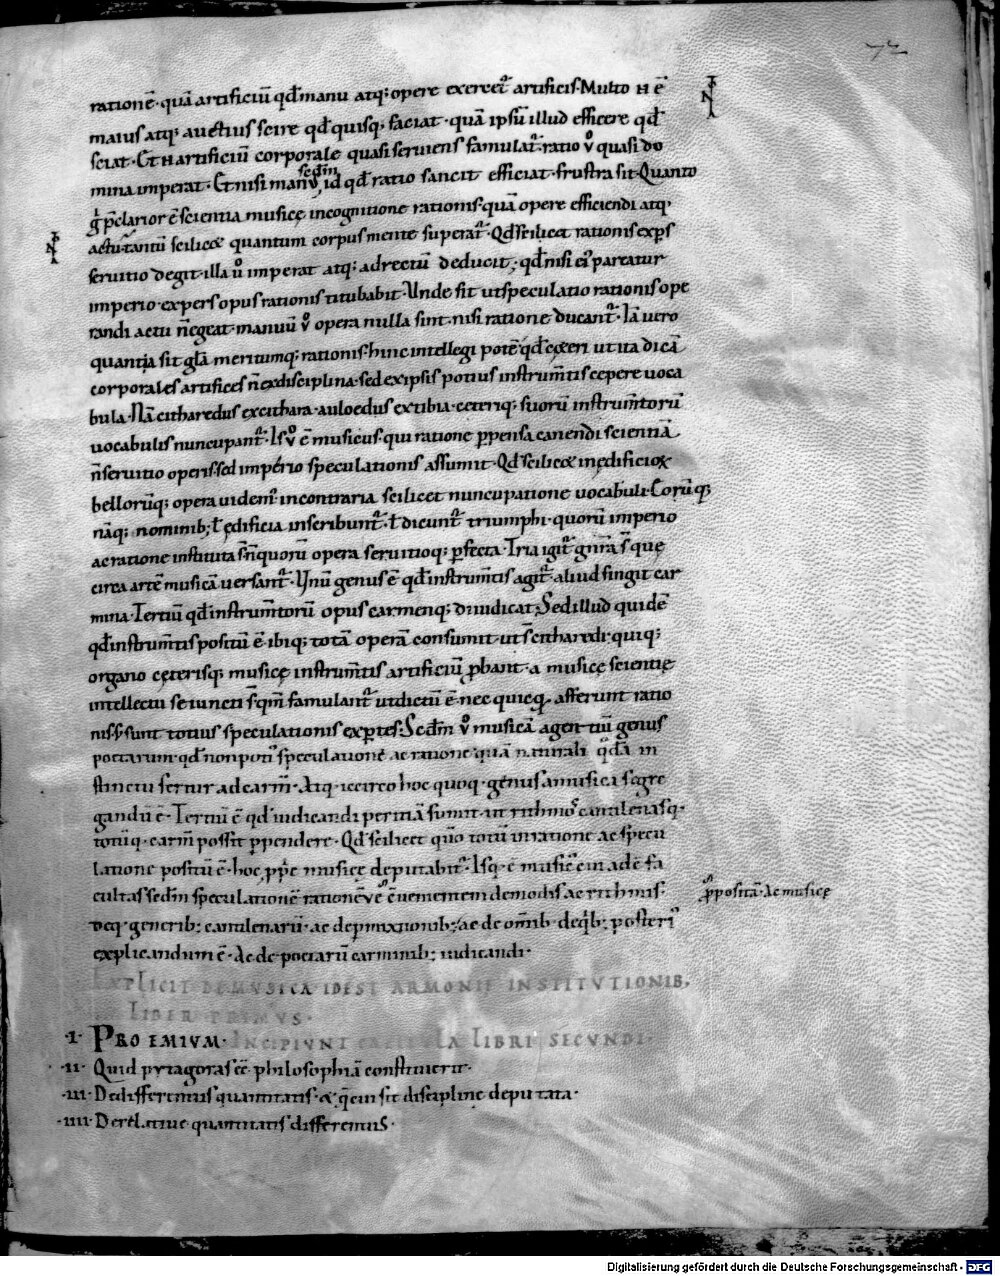 72
rationē· quā artificiū qd̄ manu atq; opere exercet᷑ artificis· Multo .N. ē
maius atq; auctius scire qd̄ quisq; faciat· quā ipsū illud efficere qd̄
sciat· Et .N. artificiū corporale quasi seruiens famulat᷑· ratio ů quasi do
secdm
mina imperat· Et nisi manꝰ, id qd̄ ratio sancit efficiat· frustra sit· Quanto
gͥ p̄clarior ē scientia musicę in cognitione rationis· quā opere efficiendi atq;
actu· tantū scilicet quantum corpus mente superat᷑· Qd̄ scilicet rationis exp̱s
seruitio degit· illa ů imperat atq; ad rectū deducit; qd̄ nisi eiꝰ pareatur
imperio· expers opus rationis titubabit· Unde fit ut speculatio rationis ope
randi actu n̄ egeat· manuū ů opera nulla sint· nisi ratione ducant᷑· Iā uero
quanta sit gl̄a meritumq; rationis· hinc intellegi potē qd̄ cęteri ut ita dicā
corporales artifices n̄ ex disciplina· sed ex ipsis potius instrum̄tis cepere uoca
bula· Nā citharedus ex cithara· auloedus ex tibia· ceteriq; suorū instrum̄torū
uocabulis nuncupant᷑· Is ů ē musicus qui ratione ꝑpensa canendi scientiā
n̄ seruitio operis· sed imperio speculationis assumit· Qd̄ scilicet in ędificioꝝ
bellorūq; opera uidem᷒ in contraria scilicet nuncupatione uocabuli· Eorūq;
nāq; nominib; ł ędificia inscribunt᷑· ł dicunt᷑ triumphi· quorū imperio
ac ratione instituta s̄· n̄ quorū opera seruitioq; ꝑfecta· Tria igit᷑ gn̄ra s̄ quę
circa artē musicā uersant᷑· Vnū genus ē qd̄ instrum̄tis agit᷑· aliud fingit car
mina· Tertiū qd̄ instrum̄torū opus carmenq; diiudicat· Sed illud quidē
qd̄ instrum̄tis positū ē ibiq; totā operā consumit· ut s̄ citharedi· quiq;
organo cęterisq; musicę instrum̄tis artificiū ꝓbant· a musicę scientię
intellectu seiuncti s̄· qm̄ famulant᷑ ut dictū ē· nec quicq̄ afferunt ratio
nis· s; sunt totius speculationis exꝑtes· Secdm ů musicā agentiū genus
poetarum· qd̄ non potiꝰ speculatione ac ratione· quā naturali q̊dā in
stinctu fertur ad carm̄· Atq; iccirco hoc quoq; genus a musica segre
gandū ē· Tertiū ē qd̄ iudicandi peritiā sumit· ut rithmos cantilenasq;
totūq; carm̄ possit ꝑpendere· Qd̄ scilicet qm̄ totū in ratione ac specu
latione positū ē· hoc ꝓprie musicę deputabit᷑· Isq; ē musicꝰ cui adē fa
cultas secdm speculationē rationēue ꝓpositā· ac musicę
cōuenientem de modis ac rithmis·
deq; generib; cantilenarū· ac de ꝑmixtionib; ac de om̄ib· de qb; posteriꝰ
explicandum ē· Ac de poetarū carminib; iudicandi·
EXPLICIT DE MVSICA IDEST ARMONICE INSTITVTIONIB,
LIBER PRIMVS·
·I· PROEMIVM· INCIPIVNT CAPITVLA LIBRI SECVNDI·
·II· Quid pytagoras eē philosophiā constituerit·
·III· De differentiis quantitatis· & q̄ cui sit disciplinę deputata·
·IIII· De relatiuę quantitatis differentiis·
Digitalisierung gefördert durch die Deutsche Forschungsgemeinschaft - DFG